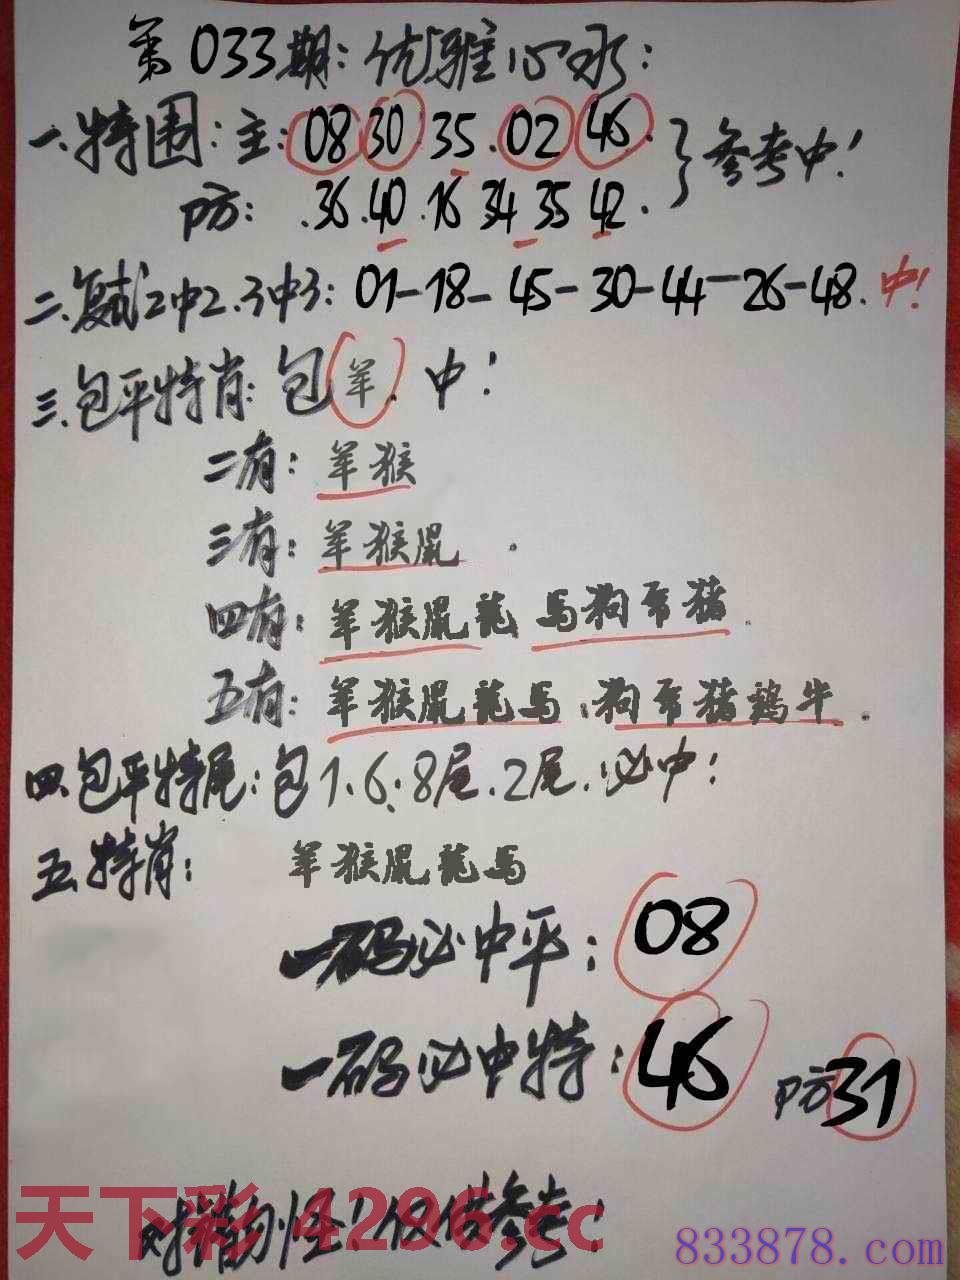 第033期：优雅心水：
一.特围：主：08 30.35.02 46. }参考中！
防：.36.40.16 34 35 42.
二.复试2中2.3中3：01-18-45-30-44-26-48.中！
三.包平特肖：包羊.中！
二有：羊猴
三有：羊猴鼠.
四有：羊猴鼠龍 馬狗兎猪.
五有：羊猴鼠龍馬.狗兎猪鷄牛.
四.包平特尾：包1.6.8尾.2尾.必中！
五.特肖：羊猴鼠龍馬
一码必中平：08
一码必中特：46 防31
仅供参考！
天下彩 4296.cc
833878.com